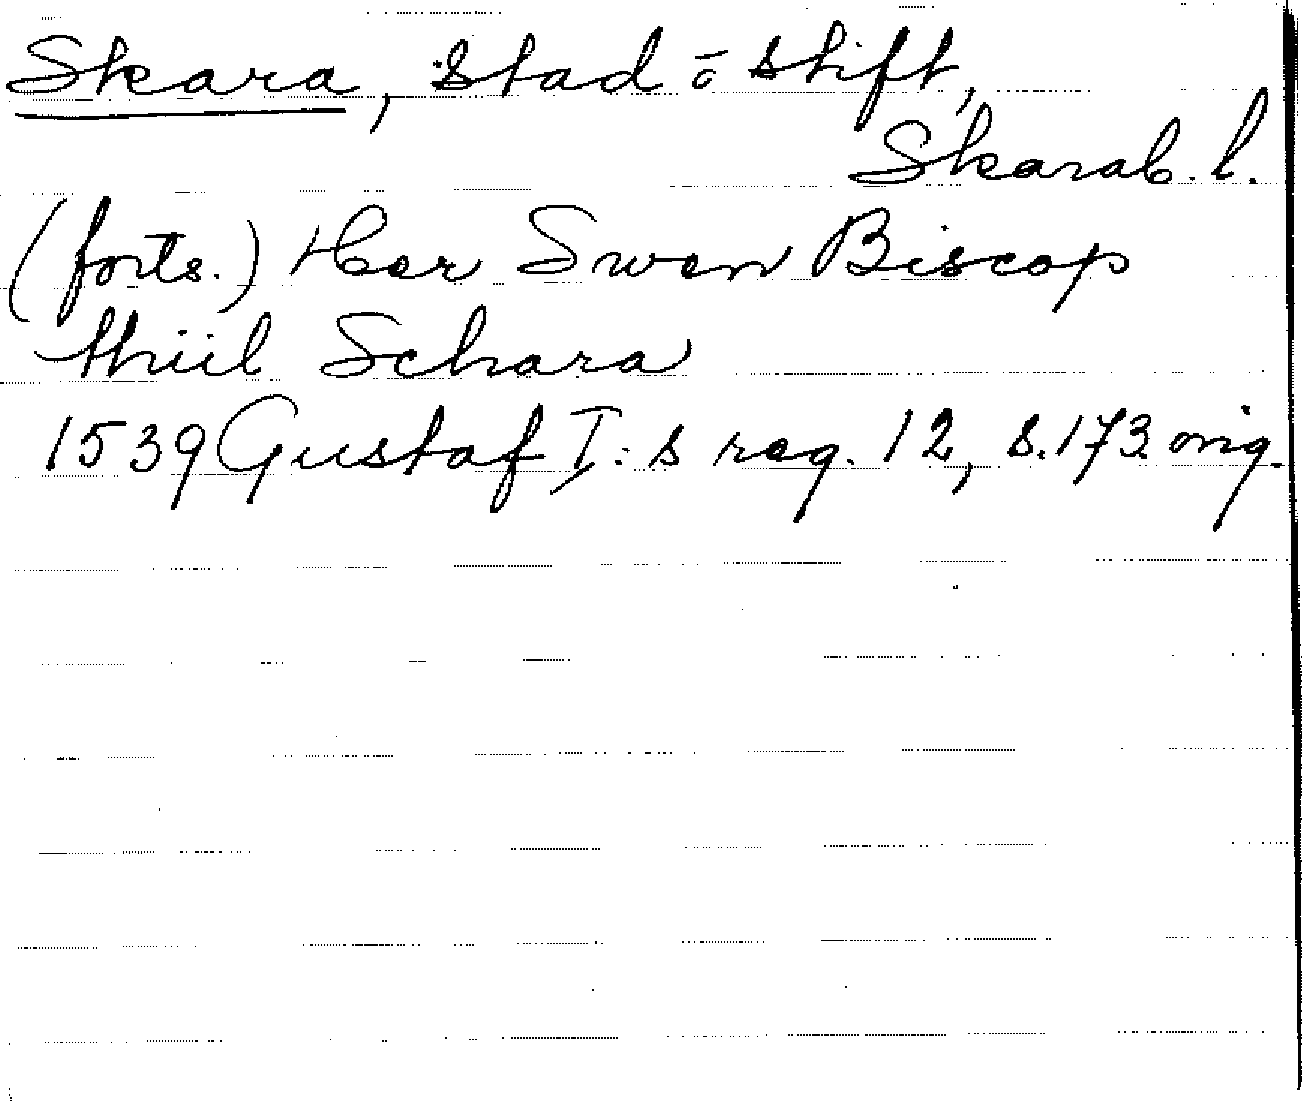 Skara, stad o stift,
Skarab. l.
(forts.) Her Swen Biscop
thiil Schara
1539 Gustaf I:s reg. 12, s. 173 orig.